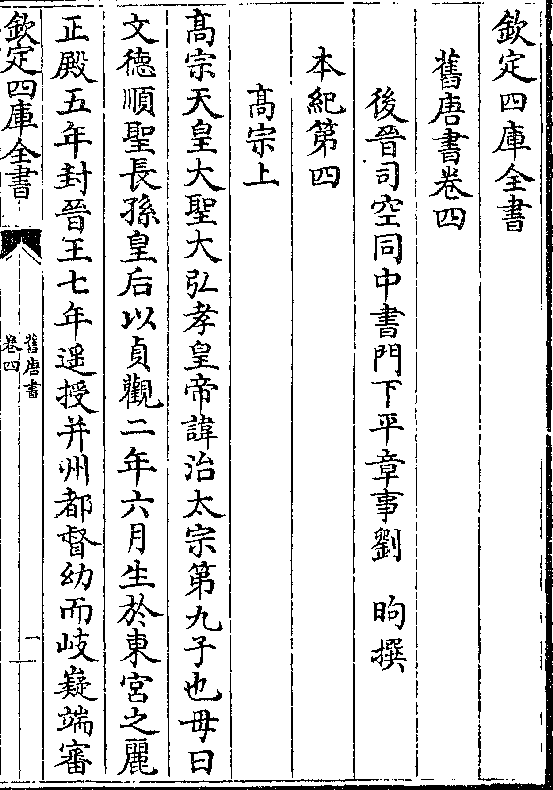 欽定四庫全書
舊唐書卷四
後晉司空同中書門下平章事劉 昫撰
本紀第四
髙宗上
髙宗天皇大聖大弘孝皇帝諱治太宗第九子也母曰
文德順聖長孫皇后以貞觀二年六月生於東宮之麗
正殿五年封晉王七年遥授并州都督幼而岐嶷端審
欽定四庫全書
舊唐書
卷四
一